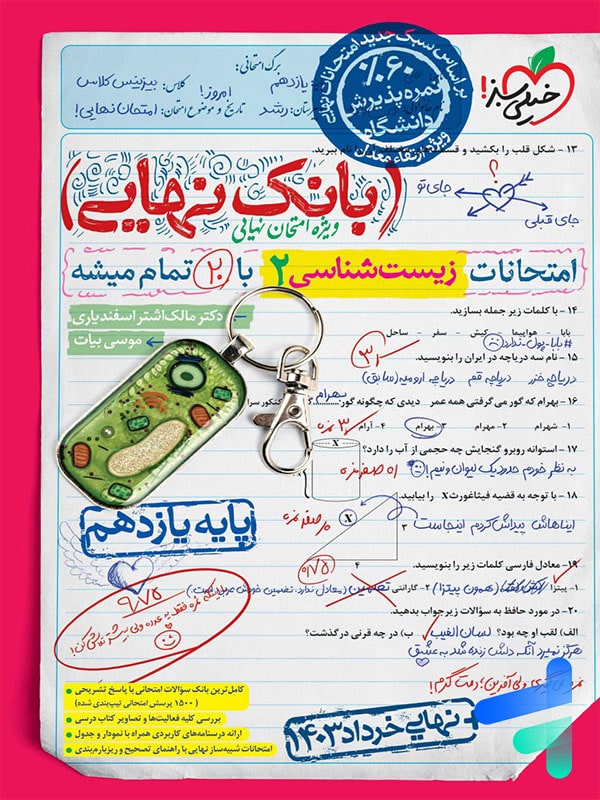 خیلی سبز!
برگ امتحانی:
یازدهم
کلاس: بیزینس کلاس
امروز!
رشد
تاریخ و موضوع امتحان: امتحان نهایی!
براساس سبک جدید امتحانات نهایی
%۶۰
نمره پذیرش
دانشگاه
ویژه ارتقاء معدل
۱۳ - شکل قلب را بکشید و
را نام ببرید.
؟
جای تو
جای قبلی
(بانک نهایی)
ویژه امتحان نهایی
امتحانات زیست‌شناسی ۲ با ۲۰ تمام میشه
دکتر مالک‌اشتر اسفندیاری
موسی بیات
۱۴ - با کلمات زیر جمله بسازید.
بابا - هواپیما - کیش - سفر - ساحل
#بابا-پول-ندارد
۱۵ - نام سه دریاچه در ایران را بنویسید.
دریاچه خزر دریاچه قم دریاچه ارومیه (سابق)
۱۶ - بهرام که گور می‌گرفتی همه عمر دیدی که چگونه گور ... بهرام
کنکور سراسری
۱- شهرام ۲- مهرام ۳- بهرام ۴- آرام
۱۷ - استوانه روبرو گنجایش چه حجمی از آب را دارد؟
به نظر خودم حدود یک لیوان و نیم!
۱۸ - با توجه به قضیه فیثاغورث X را بیابید.
ایناهاش پیداش کردم اینجاست
X
۳
۴
پایه یازدهم
۱۹- معادل فارسی کلمات زیر را بنویسید.
۱- پیتزا (همون پیتزا) ۲- گارانتی تضمین
۲۰- در مورد حافظ به سؤالات زیر جواب بدهید.
الف) لقب او چه بود؟ لسان الغیب ب) در چه قرنی درگذشت؟
هرگز نمیرد آنکه دلش زنده شد به عشق
۹/۷۵
کامل‌ترین بانک سؤالات امتحانی با پاسخ تشریحی
(۱۵۰۰ پرسش امتحانی تیپ‌بندی شده)
بررسی کلیه فعالیت‌ها و تصاویر کتاب درسی
ارائه درسنامه‌های کاربردی همراه با نمودار و جدول
امتحانات شبیه‌ساز نهایی با راهنمای تصحیح و ریزبارم‌بندی
+ نهایی خرداد ۱۴۰۳